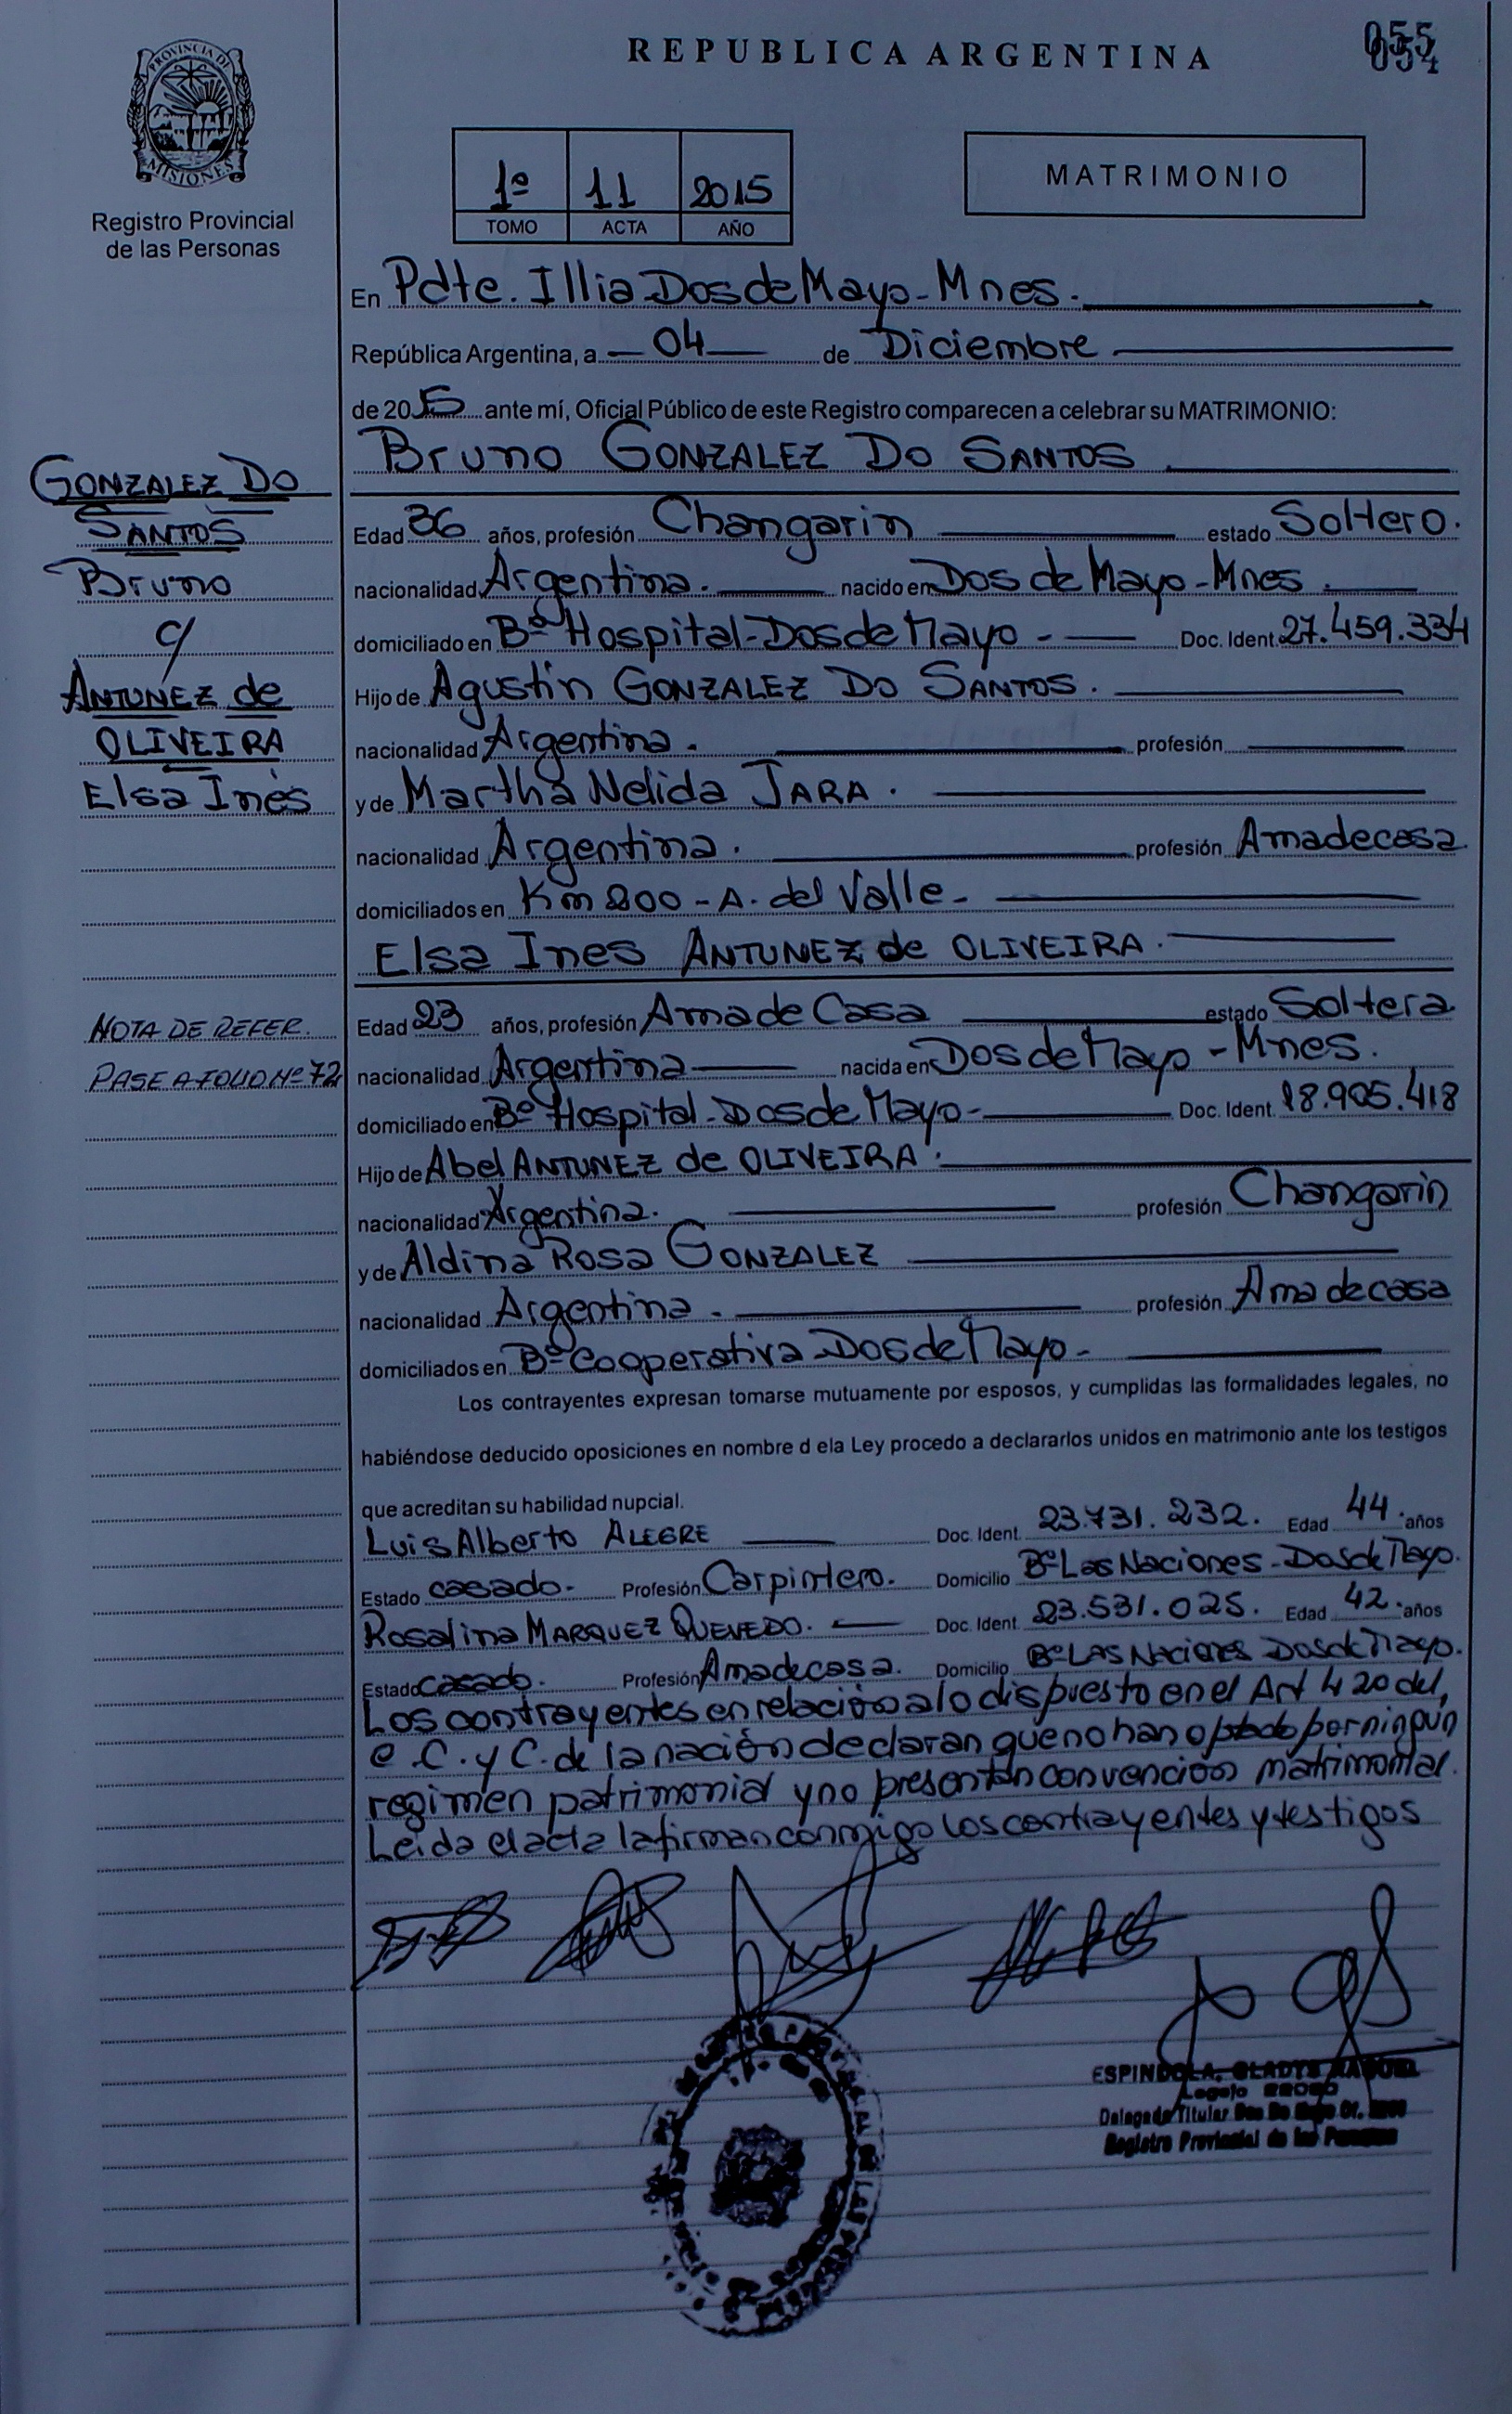 REPUBLICA ARGENTINA
PROVINCIA DE
MISIONES
Registro Provincial
de las Personas
1º 11 2015
TOMO ACTA AÑO
MATRIMONIO
En Pdte. Illia Dos de Mayo - Mnes.
República Argentina, a 04 de Diciembre
de 2015 ante mí, Oficial Público de este Registro comparecen a celebrar su MATRIMONIO:
Bruno GONZALEZ DO SANTOS
GONZALEZ DO
SANTOS
Bruno
c/
ANTUNEZ de
OLIVEIRA
Elsa Inés
Edad 36 años, profesión Changarin estado Soltero.
nacionalidad Argentina. nacido en Dos de Mayo - Mnes.
domiciliado en Bº Hospital - Dos de Mayo - Doc. Ident. 27.459.334
Hijo de Agustin GONZALEZ DO SANTOS.
nacionalidad Argentina. profesión
y de Martha Nelida JARA.
nacionalidad Argentina. profesión Ama de casa
domiciliados en Km 200 - A. del Valle -
Elsa Ines ANTUNEZ de OLIVEIRA.
NOTA DE REFER.
PASE A FOLIO Nº 72
Edad 23 años, profesión Ama de Casa estado Soltera
nacionalidad Argentina nacida en Dos de Mayo - Mnes.
domiciliado en Bº Hospital - Dos de Mayo - Doc. Ident. 18.905.418
Hijo de Abel ANTUNEZ de OLIVEIRA.
nacionalidad Argentina. profesión Changarin
y de Aldina Rosa GONZALEZ
nacionalidad Argentina. profesión Ama de casa
domiciliados en Bº Cooperativa Dos de Mayo -
Los contrayentes expresan tomarse mutuamente por esposos, y cumplidas las formalidades legales, no
habiéndose deducido oposiciones en nombre d ela Ley procedo a declararlos unidos en matrimonio ante los testigos
que acreditan su habilidad nupcial.
Luis Alberto ALEGRE Doc. Ident. 23.731.232. Edad 44. años
Estado casado. Profesión Carpintero. Domicilio Bº Las Naciones - Dos de Mayo.
Rosalina MARQUEZ QUEVEDO. Doc. Ident. 23.531.025. Edad 42. años
Estado casado. Profesión Ama de casa. Domicilio Bº LAS Naciones Dos de Mayo.
Los contrayentes en relación a lo dispuesto en el Art 420 del,
C. C. y C. de la nación declaran que no han optado por ningun
regimen patrimonial y no presentan convención matrimonial.
Leida el acta la firman conmigo los contrayentes y testigos
ESPINDOLA, GLADYS RAQUEL
Legajo
Delegada Titular Dos De Mayo
Registro Provincial de las Personas